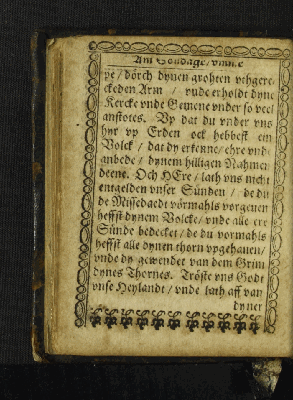 Am Sondage, vmme
pe / dörch dynen grohten vthgere-
ckeden Arm / vnde erholdt dyne
Kercke vnde Gemene vnder so veel
anstotes. Vp dat du vnder vns
hyr vp Erden ock hebbest ein
Volck / dat dy erkenne / ehre vnd
anbede / dynem hilligen Nahmen
deene. Och HEre / lath vns nicht
entgelden vnser Sünden / de du
de Missedaedt vörmahls vorgeuen
heffst dynem Volcke / vnde alle ere
Sünde bedecket / de du vormahls
heffst alle dynen thorn vpgehauen /
vnde dy gewendet van dem Grim
dynes Thornes. Tröste vns Godt
vnse Heylandt / vnde lath aff van
dyner